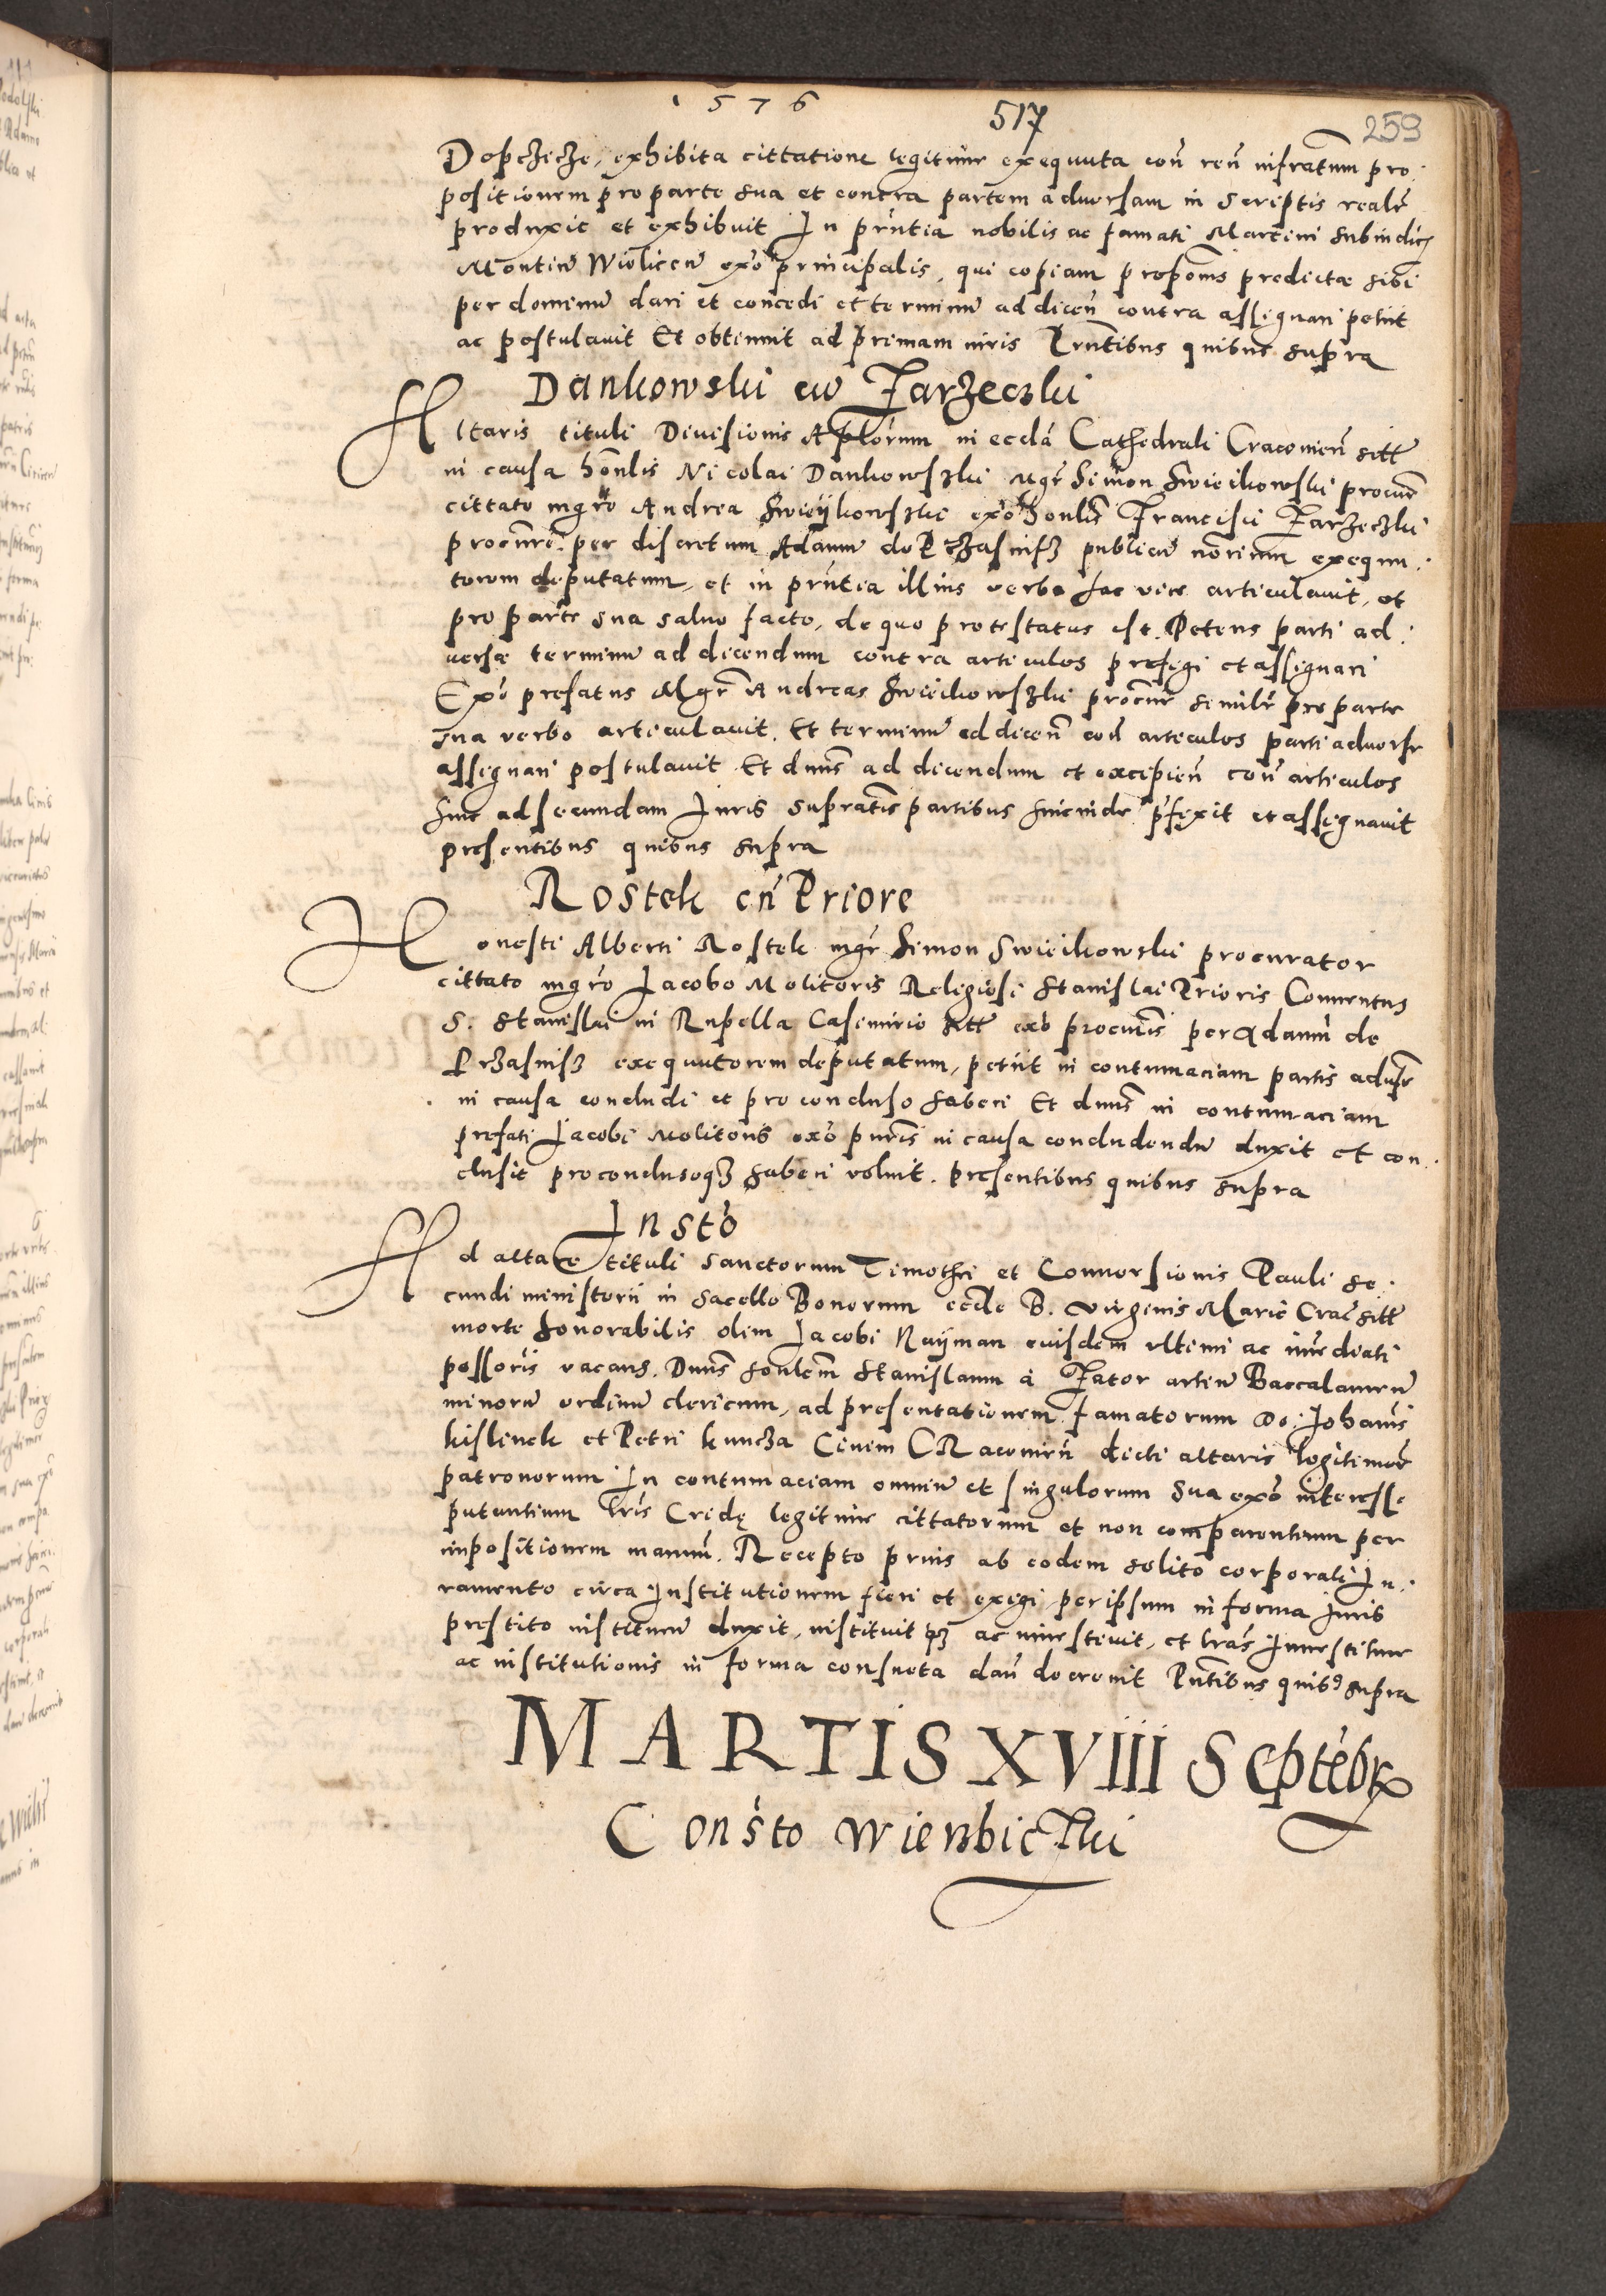 1576 517 259
Dopczicze, exhibita cittatione legittime exequuta con̄ ren̄ infratum pro-
positionem pro parte sua et contra partem adversam in Scriptis realr̄
produxit et exhibuit In prn̄tia nobilis ac famati Martini subiudicis
Montiū Wielicen̄ exo͂ principalis, qui copiam propōnis predictæ sibi
per dominū dari et concedi et terminū ad dicen̄ contra assignari petiit
ac postulavit Et obtinuit ad primam iuris Prn̄tibus quibus supra
Dankowski cū Zarzeczki
Altaris tituli Divisionis Aplōrum in eccla͂ Cathedrali Cracovien̄ sitt̄
in causa hon̄lis Nicolai Dankowszki mgr̄ Simon Swieikowski procur̄
cittato mgrō Andrea Swieÿkowszki exo͂ honlis̄ Francisci Zarzeczki
procurē. per discretum Adamū de Przasnisz publicū norium exequu-
torem deputatum, et in prn̄tia illius verbo hac vice articulavit, et
pro parte sua salvo facto, de quo protestatus est. Petens parti ad-
versæ terminū ad dicendum contra articulos prefigi et assignari
Exo͂ prefatus Mgr̄ Andreas Swieikowszki procur̄ similr̄ pro parte
sua verbo articulavit. Et terminū ad dicen̄ con̄ articulos parti adverse
assignari postulavit Et dnus̄ ad dicendum et excipien̄ con̄ articulos
hinc ad secundam Iuris supratis̄ partibus hincinde pr̄fixit et assignavit
presentibus quibus supra
Rostek cn̄ Priore
Honesti Alberti Rostek mgr̄ Simon Swieikowski procurator
cittato mgrō Jacobo Molitoris Religiosi Stanislai Prioris Conventus
S. Stanislai in Rupella Casimirie sitt̄ exo͂ procuris̄ per Adamū de
Przasnisz exequutorem deputatum, petiit in contumaciam partis advsr̄
in causa concludi et pro concluso haberi Et dnus̄ in contumaciam
prefati Jacobi Molitoris exo͂ pnris̄ in causa concludendū duxit et con-
clusit pro conclusoqz haberi voluit. presentibus quibus supra
Insto͂
Ad altare tituli Sanctorum Timothei et Conversionis Pauli se-
cundi ministerii in sacello Bonerum eccle B. virginis Marie Crac̄ sitt̄
morte honorabilis olim Jacobi Naÿman eiusdem ultimi ac im̄ediati
possoris̄ vacans. Dnus̄ honlem̄ Stanislaum à Zator artiū Baccalaureū
minorū ordinū clericum, ad presentationem famatorum Do: Johanis̄
kislinck et Petri kuncza Civium CRacovien̄ dicti altaris legitimor̄
patronorum In contumaciam omniū et singulorum sua exo͂ interesse
putantium lris̄ Cridę legitime cittatorum et non comparentium per
impositionem manuū. Recepto prius ab eodem solito corporali Iu-
ramento circa Institutionem fieri et exigi per ipsum in forma Iuris
prestito instituēn duxit, instituit qz ac investivit, et lras̄ Investiture
ac institutionis in forma consueta dan̄ decrevit Pn̄tibus quibꝰ supra
MARTIS XVIIII Septēbr
Consto͂ Wierzbiczki